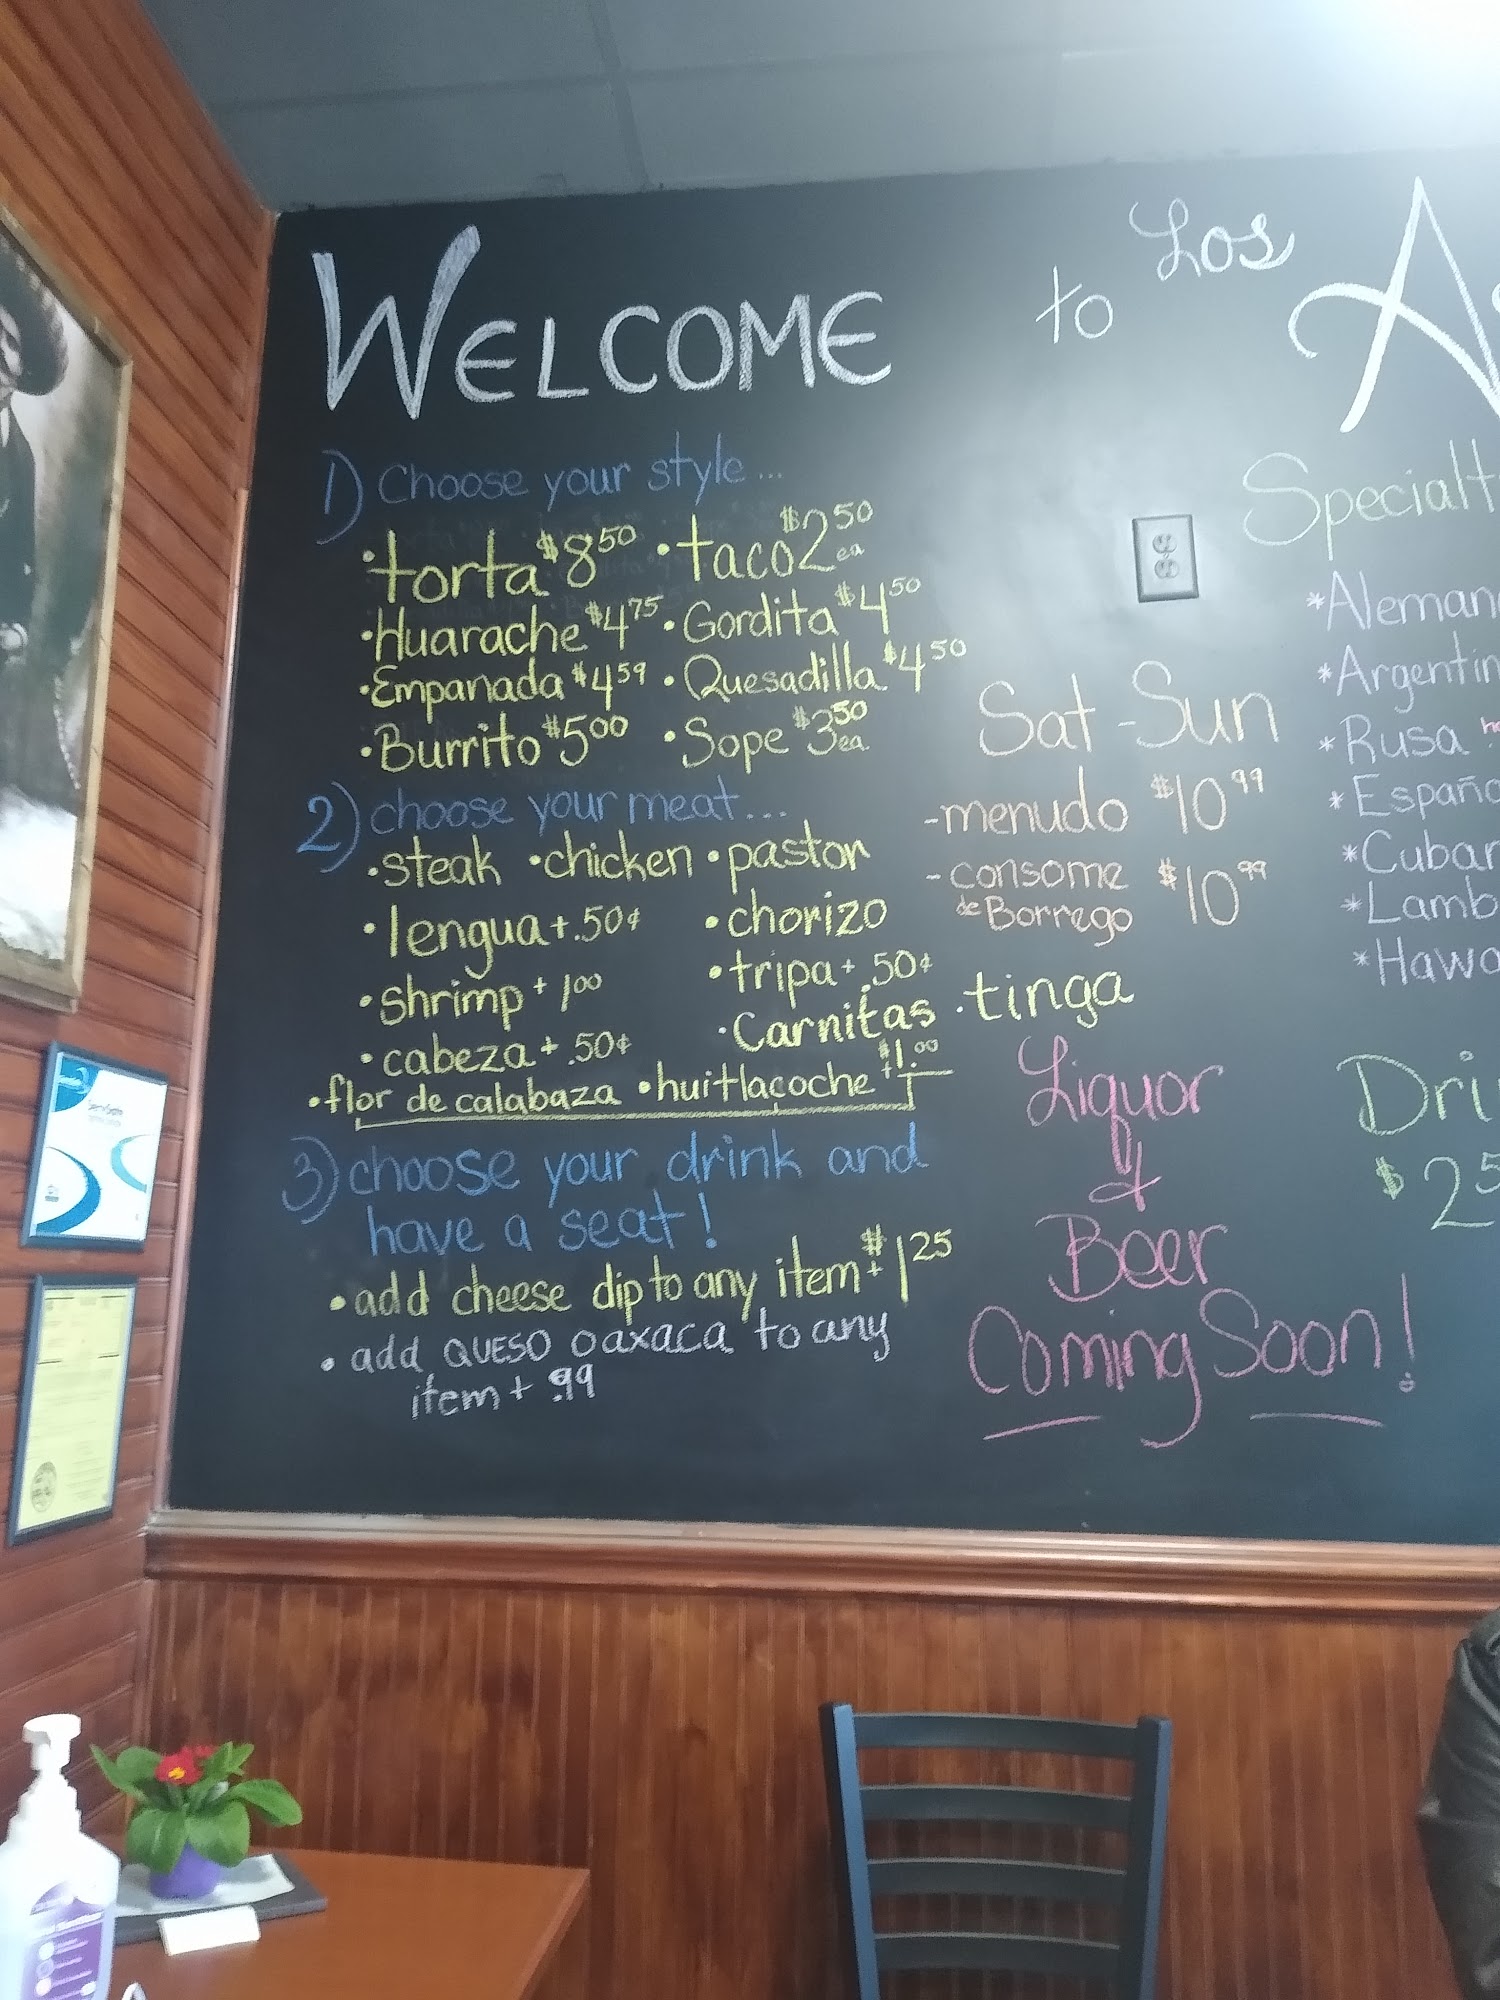 WELCOME to Los
1) Choose your style...
• torta $8.50 • taco $2.50 ea
• Huarache $4.75 • Gordita $4.50
• Empanada $4.59 • Quesadilla $4.50
• Burrito $5.00 • Sope $3.50 ea.
2) choose your meat...
• steak • chicken • pastor
• lengua + .50¢ • chorizo
• shrimp + 1.00 • tripa + .50¢
• cabeza + .50¢ • Carnitas • tinga
• flor de calabaza • huitlacoche + $1.00
3) choose your drink and
have a seat!
• add cheese dip to any item + $1.25
• add QUESO oaxaca to any
item + .99
Sat - Sun
- menudo $10.99
- consome $10.99
de Borrego
Liquor
&
Beer
Coming Soon!
Specialt
* Aleman
* Argentin
* Rusa
* Españo
* Cuban
* Lamb
* Hawa
Dri
$2.5